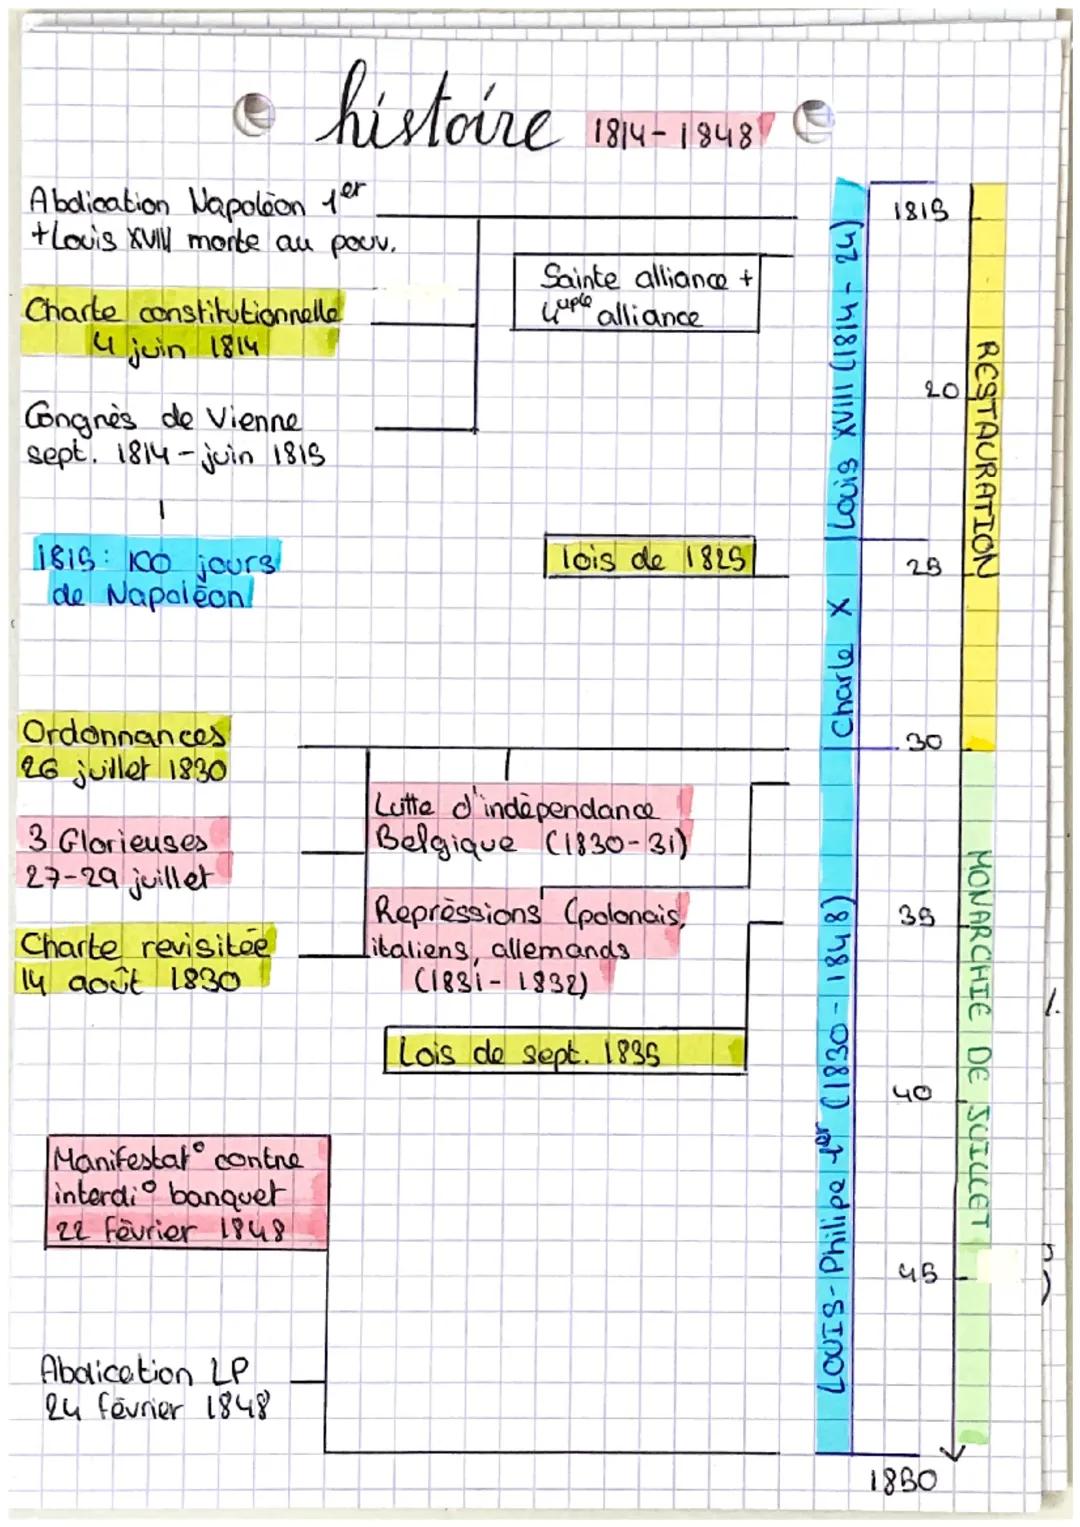 histoire 1814-1848
Abdication Napoléon 1er
+ Louis XVIII monte au pouv.
Sainte alliance +
4uple alliance
Charte constitutionnelle
4 juin 1814
Congrès de Vienne
sept. 1814 - juin 1815
1815: 100 jours
de Napoléon
lois de 1825
Ordonnances
26 juillet 1830
3 Glorieuses
27-29 juillet
Charte revisitée
14 août 1830
Lutte d'indépendance
Belgique (1830-31)
Représsions (polonais,
italiens, allemands
(1831-1832)
Lois de sept. 1835
Manifestat° contre
interdi° banquet
22 février 1848
Abdication LP
24 février 1848
Louis XVIII (1814-24)
Charle X
LOUIS-Philipe 1er (1830-1848)
1815
20
25
30
35
40
45
1850
RESTAURATION
MONARCHIE DE JUILLET